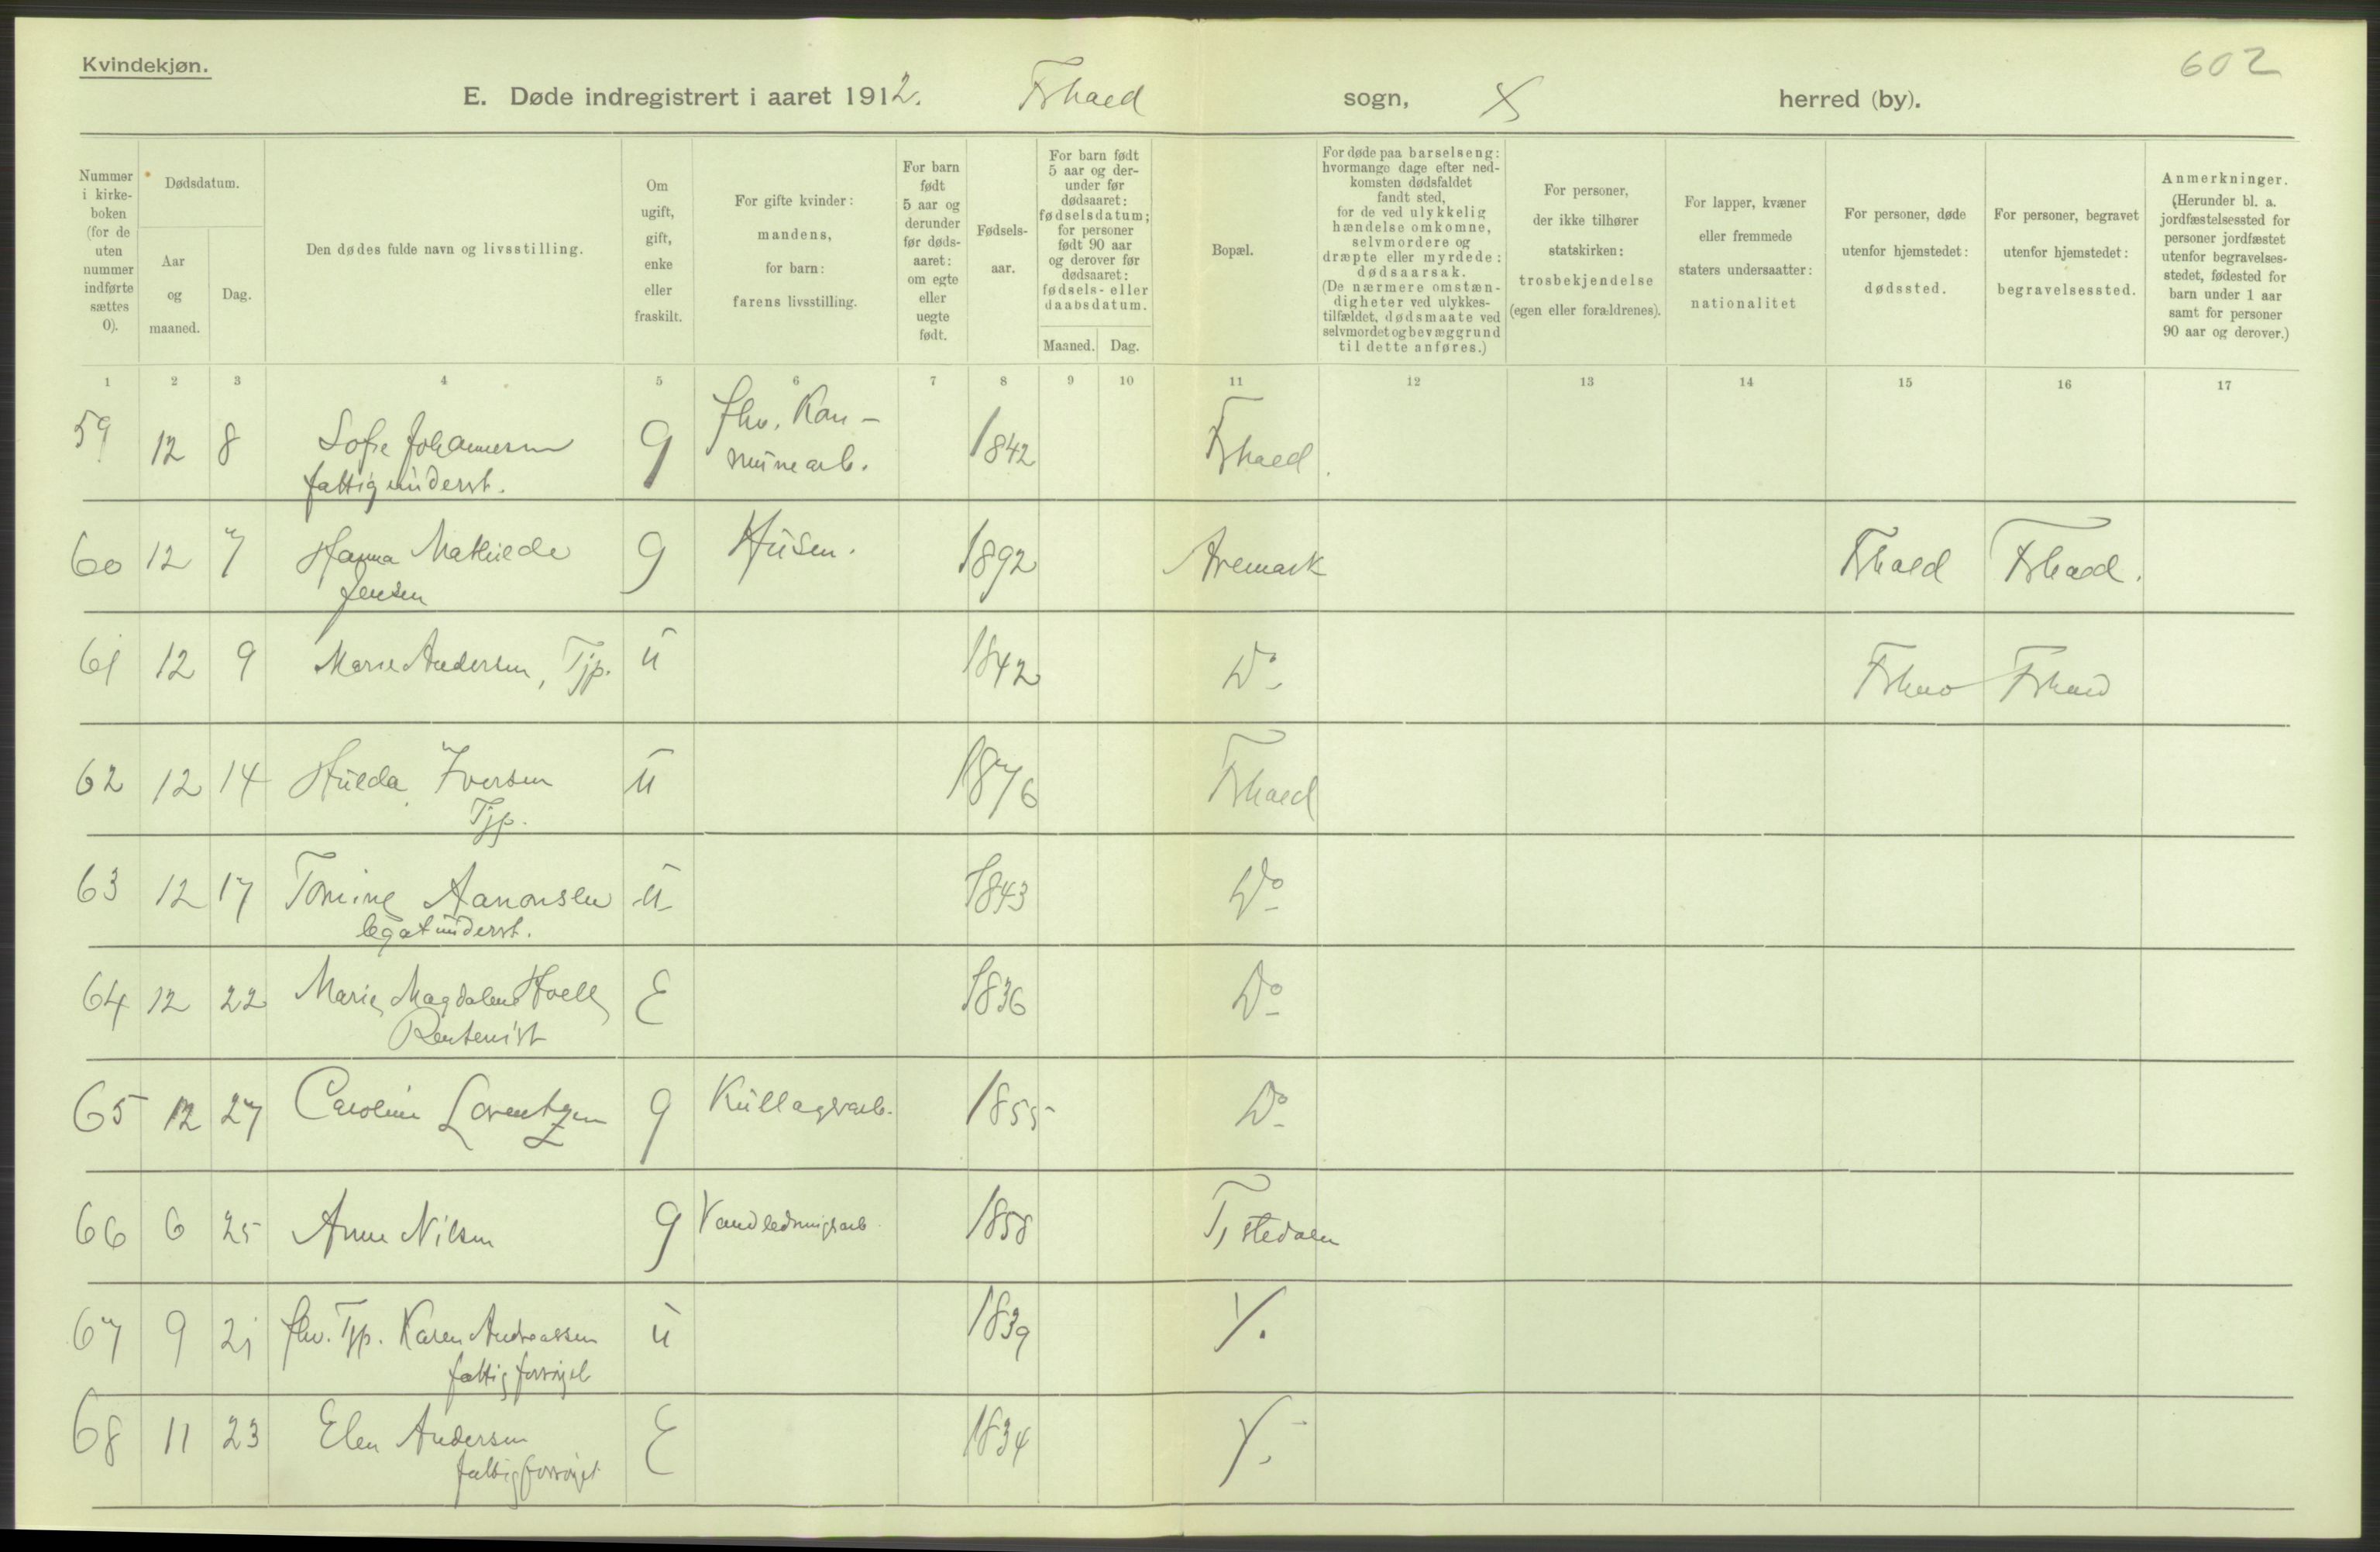 Kvindekjøn.
602
E. Døde indregistrert i aaret 1912. Frhald sogn, herred (by).
Nummer i kirke- boken (for de uten nummer indførte sættes 0).
Dødsdatum.
Aar og maaned.
Dag.
Den dødes fulde navn og livsstilling.
Om ugift, gift, enke eller fraskilt.
For gifte kvinder: mandens, for barn: farens livsstilling.
For barn født 5 aar og derunder før døds- aaret: om egte eller uegte født.
Fødsels- aar.
For barn født 5 aar og der- under før dødsaaret: fødselsdatum; for personer født 90 aar og derover før dødsaaret: fødsels- eller daabsdatum.
Maaned. Dag.
Bopæl.
For døde paa barselseng: hvormange dage efter ned- komsten dødsfaldet fandt sted, for de ved ulykkelig hændelse omkomne, selvmordere og dræpte eller myrdede: dødsaarsak. (De nærmere omstæn- digheter ved ulykkes- tilfældet, dødsmaate ved selvmordet og bevæggrund til dette anføres.)
For personer, der ikke tilhører statskirken: trosbekjendelse (egen eller forældrenes).
For lapper, kvæner eller fremmede staters undersaatter: nationalitet
For personer, døde utenfor hjemstedet: dødssted.
For personer, begravet utenfor hjemstedet: begravelsessted.
Anmerkninger. (Herunder bl. a. jordfæstelsessted for personer jordfæstet utenfor begravelses- stedet, fødested for barn under 1 aar samt for personer 90 aar og derover.)
1 2 3 4 5 6 7 8 9 10 11 12 13 14 15 16 17
59 12 8 Sofie Johannesen g fhv. Kom- 1842 Frhald
fattigunderst. munearb.
60 12 7 Hanna Mathilde g Husm. 1892 Aremark Frhald Frhald.
Jensen
61 12 9 Marie Andersen, Tjp. u 1842 Do Frhald Frhald
62 12 14 Hulda Iversen u 1876 Frhald
Tjp.
63 12 17 Tomine Aanonsen u 1843 Do
legatunderst.
64 12 22 Marie Magdalene E 1836 Do
Rentenist
65 12 27 Caroline Lorentzen g Kullagerarb. 1855 Do
66 6 25 Anne Nilsen g Vandledningsarb 1858 Tistedalen
67 9 21 fhv. Tjp. Karen Andreassen u 1839
fattigforsørget
68 11 23 Elen Andersen E 1834
fattigforsørget